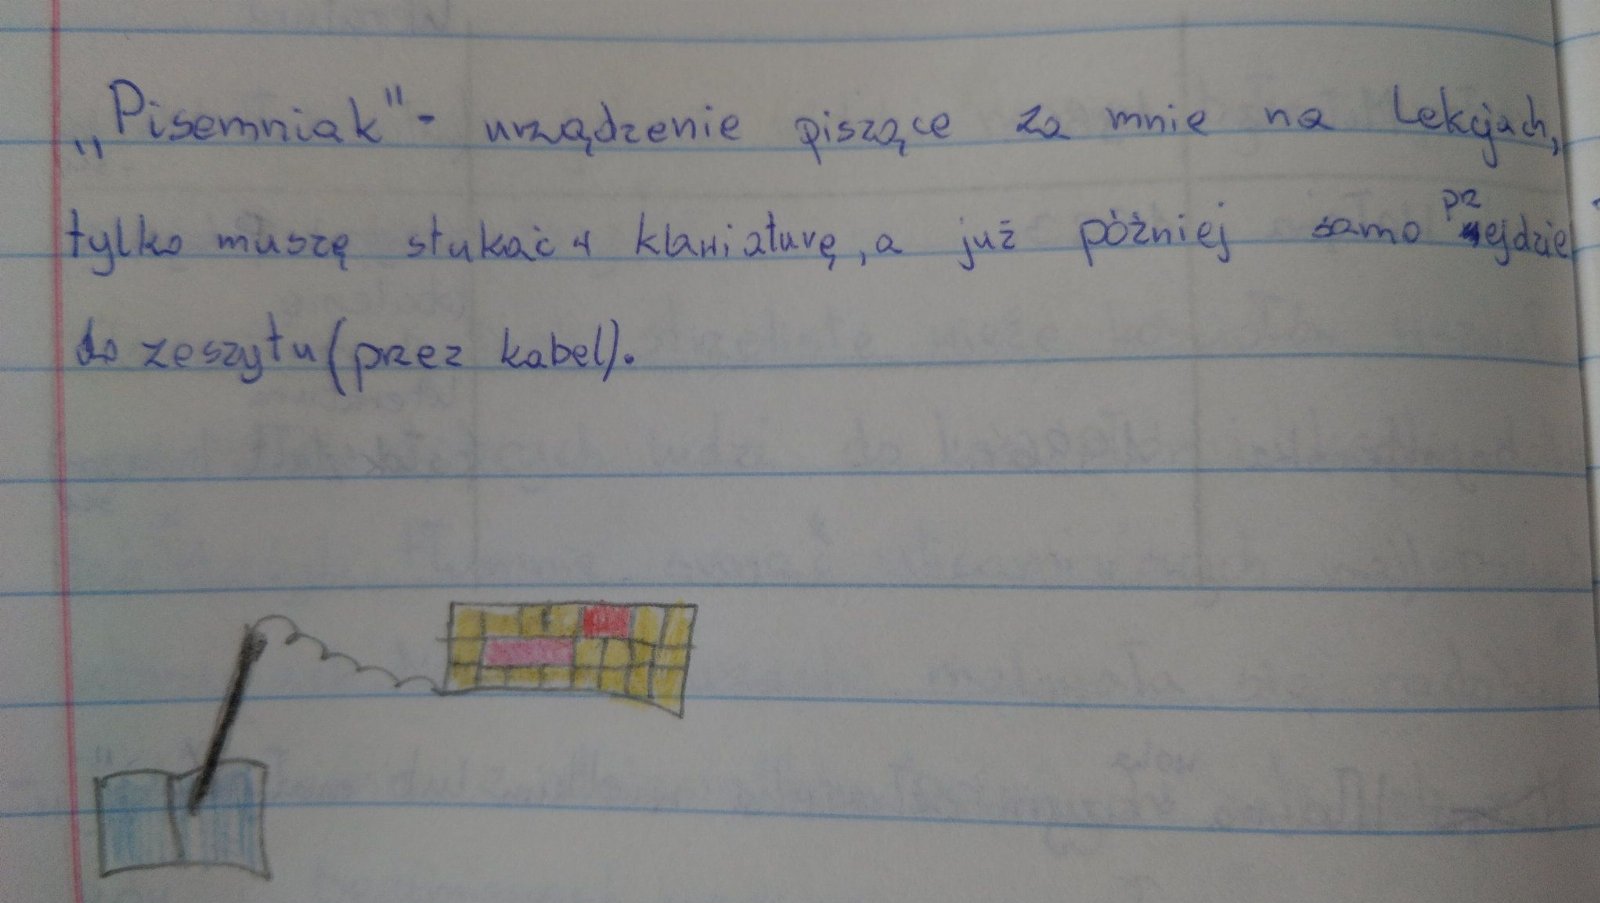 „Pisemniak" - urządzenie piszące za mnie na lekcjach,
tylko muszę stukać w klawiaturę, a już później samo przejdzie
do zeszytu (przez kabel).